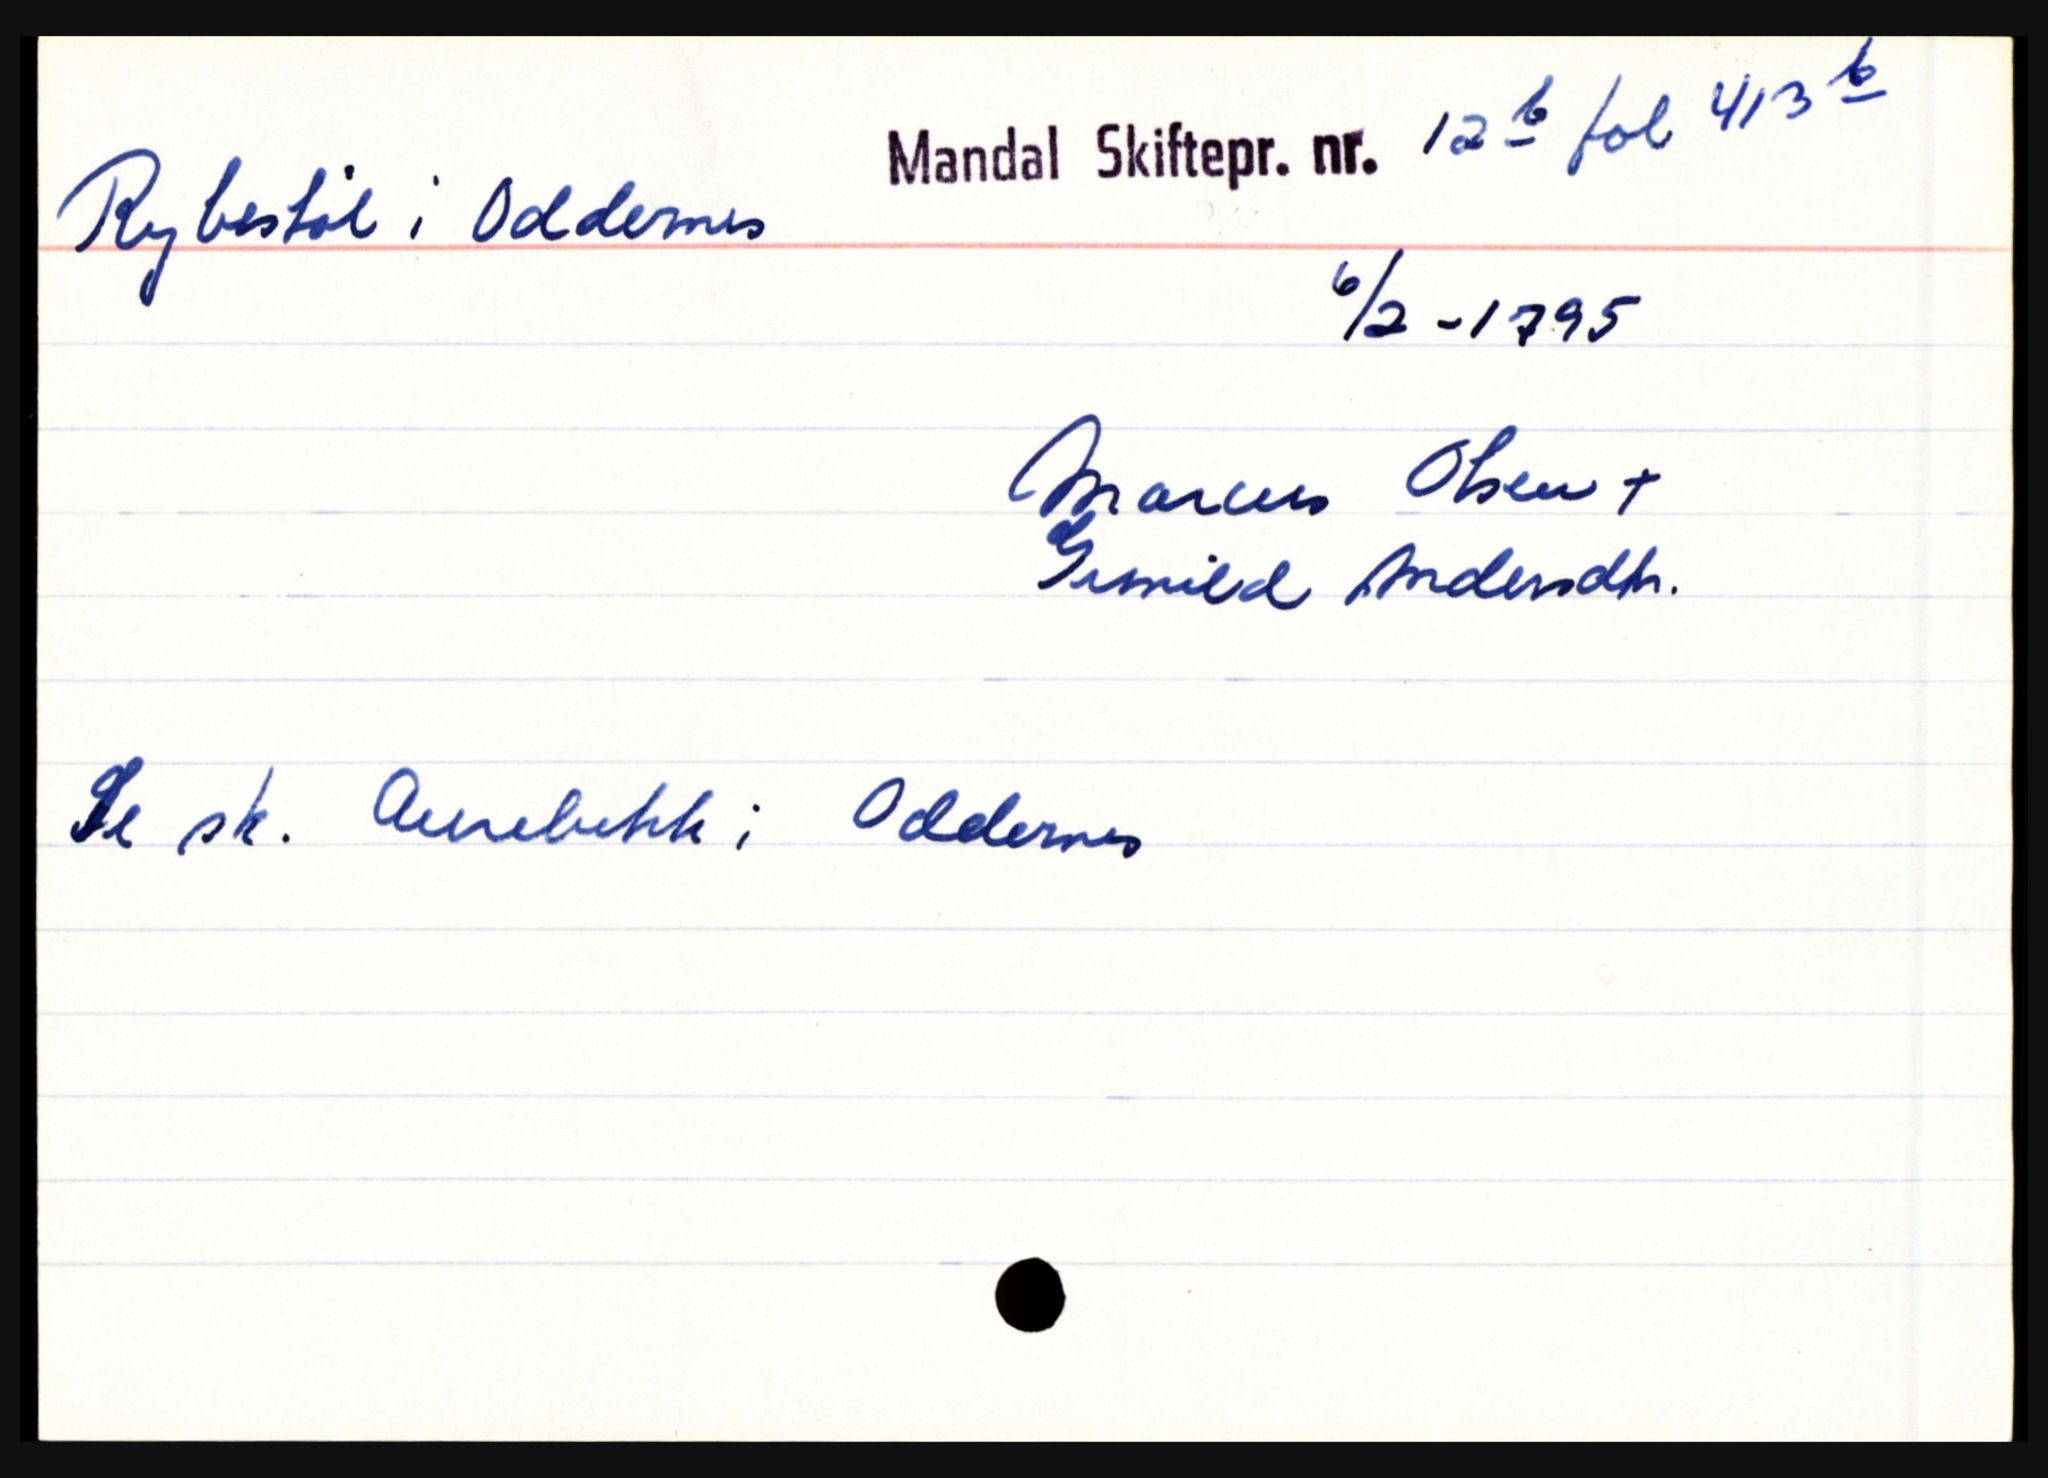 Mandal Skiftepr. nr. 12 b fol 413 b
Rybestøl i Oddernes
6/2 - 1795
Marcus Olsen +
Gunild Andersdtr.
Se sk. Aurebekk i Oddernes